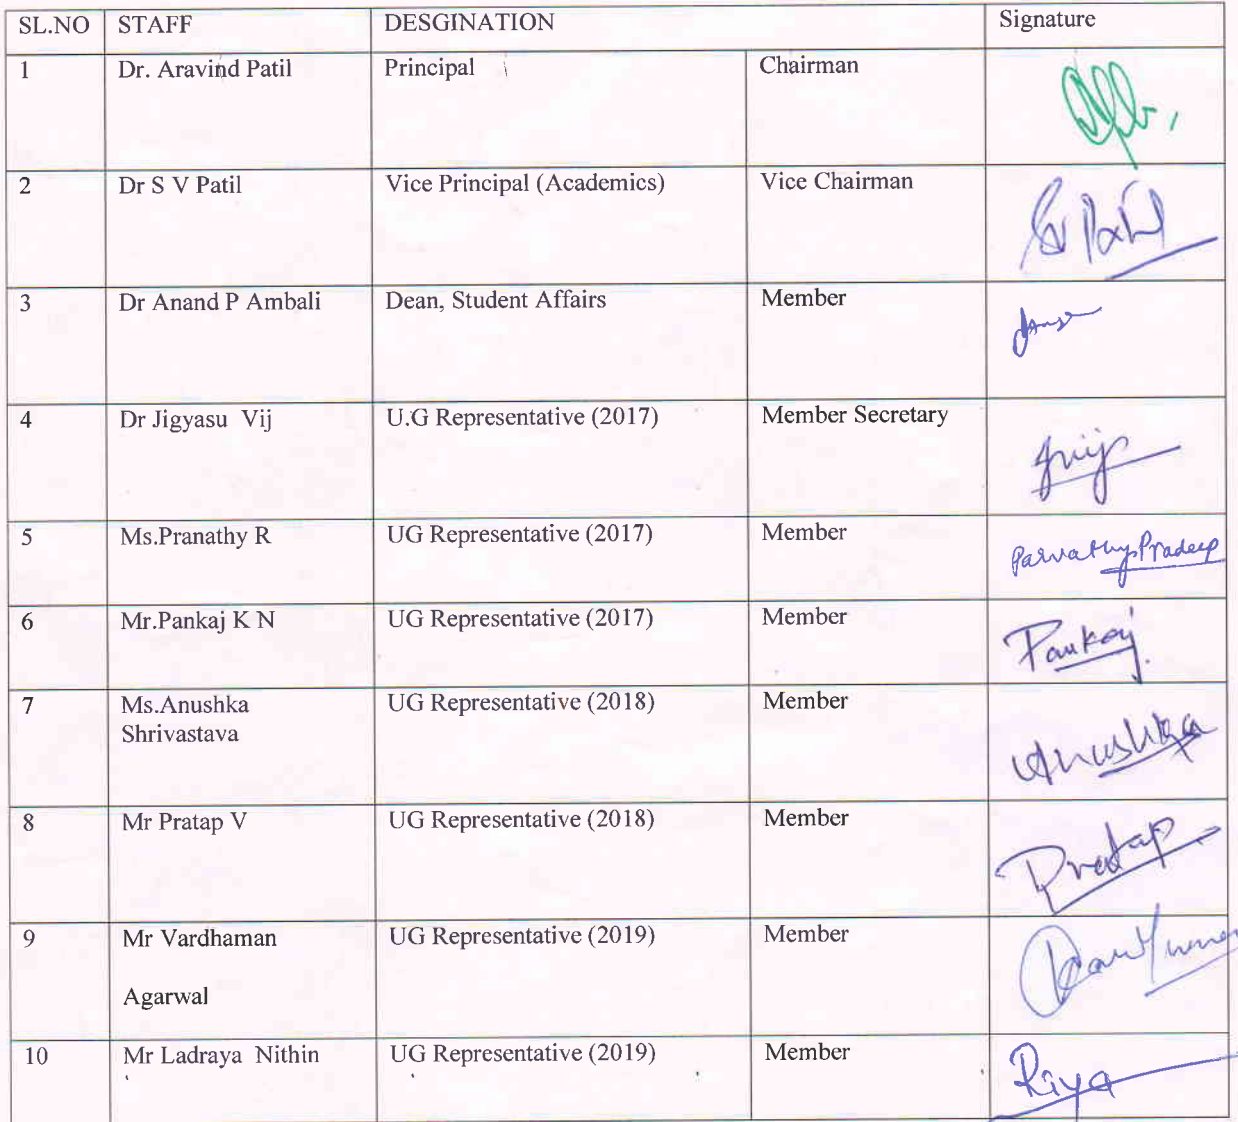 SL.NO STAFF DESGINATION Signature
1 Dr. Aravind Patil Principal Chairman
2 Dr S V Patil Vice Principal (Academics) Vice Chairman SV Patil
3 Dr Anand P Ambali Dean, Student Affairs Member
4 Dr Jigyasu Vij U.G Representative (2017) Member Secretary Jvij
5 Ms.Pranathy R UG Representative (2017) Member Parvathy Pradeep
6 Mr.Pankaj K N UG Representative (2017) Member Pankaj
7 Ms.Anushka UG Representative (2018) Member Anushka
Shrivastava
8 Mr Pratap V UG Representative (2018) Member Pratap
9 Mr Vardhaman UG Representative (2019) Member
Agarwal
10 Mr Ladraya Nithin UG Representative (2019) Member Riya